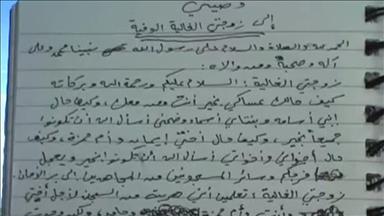 وصيتي
إلى زوجتي الغالية الوفية
الحمد لله والصلاة والسلام على رسول الله نبينا محمد وعلى
آله وصحبه ومن والاه :
زوجتي الغالية : السلام عليكم ورحمة الله وبركاته
كيف حالك عساكي بخير أنت ومن معك ، وكيف حال
إبني أسامه وبنتاي أسماء وضحى أسأل الله أن تكونوا
جميعاً بخير ، وكيف حال أختي إيمان وأم حمزة ، وكيف
حال أخواني وأخواتي أسأل الله أن تكونوا بخير ويعجل
فرجكم وسائر المسجونين من المجاهدين إلى بر الأمان
زوجتي الغالية : تعلمين أنني هربت من السجن لأجل أختي